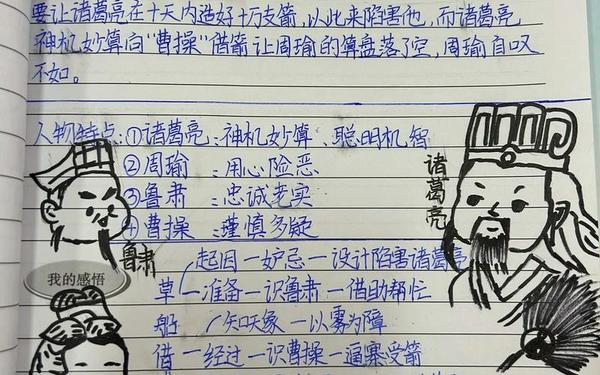 要让诸葛亮在十天内造好十万支箭,以此来陷害他,而诸葛亮
神机妙算向“曹操”借箭让周瑜的算盘落了空,周瑜自叹
不如。
人物特点:①诸葛亮:神机妙算、聪明机智
②周瑜:用心险恶
③鲁肃:忠诚老实
④曹操:谨慎多疑
诸葛亮
鲁肃
我的感悟
起因一妒忌一设计陷害诸葛亮
草一准备一识鲁肃一借助帮忙
船 知天象一以雾为障
借一经过一识曹操一逼寨受箭